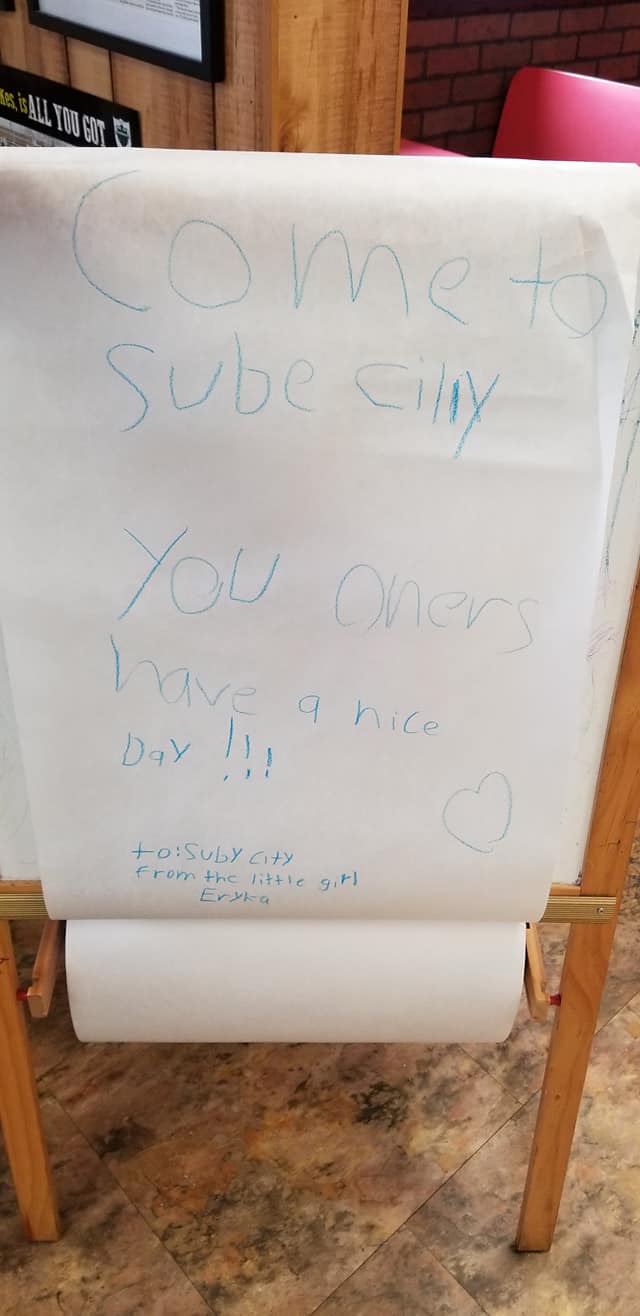 kes, is ALL YOU GOT
Come to
Sube cilly
You oners
have a nice
Day !!!
to: Suby City
from the little girl
Eryka